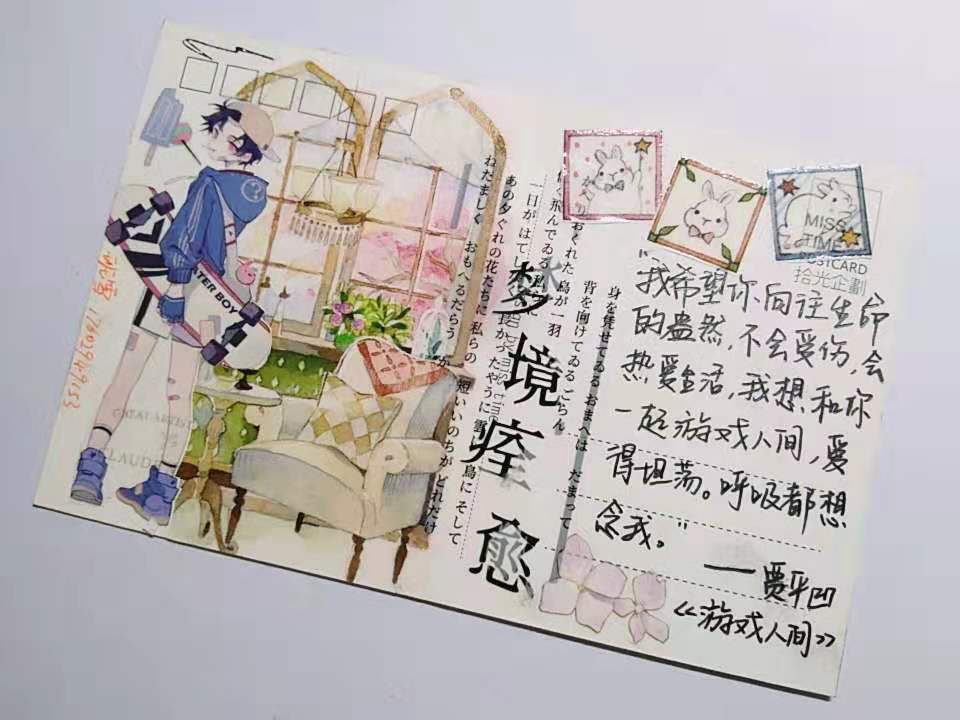 MISS
TIME
POSTCARD
拾光企劃
我希望你向往生命
的盎然,不会受伤,会
热爱生活,我想和你
一起游戏人间,爱
得坦荡。呼吸都想
念我。"
——贾平凹
《游戏人间》
梦境痊愈
身を凭せてゐるおまへは だまって
背を向けてゐる
おくれた 鳥が一羽
飛んでゐる
一日がはて
あの夕ぐれの花たちに 私らの 短いいのちが どれだけ
ねたましく おもへるだらう か
鳥に そして
TER BOY